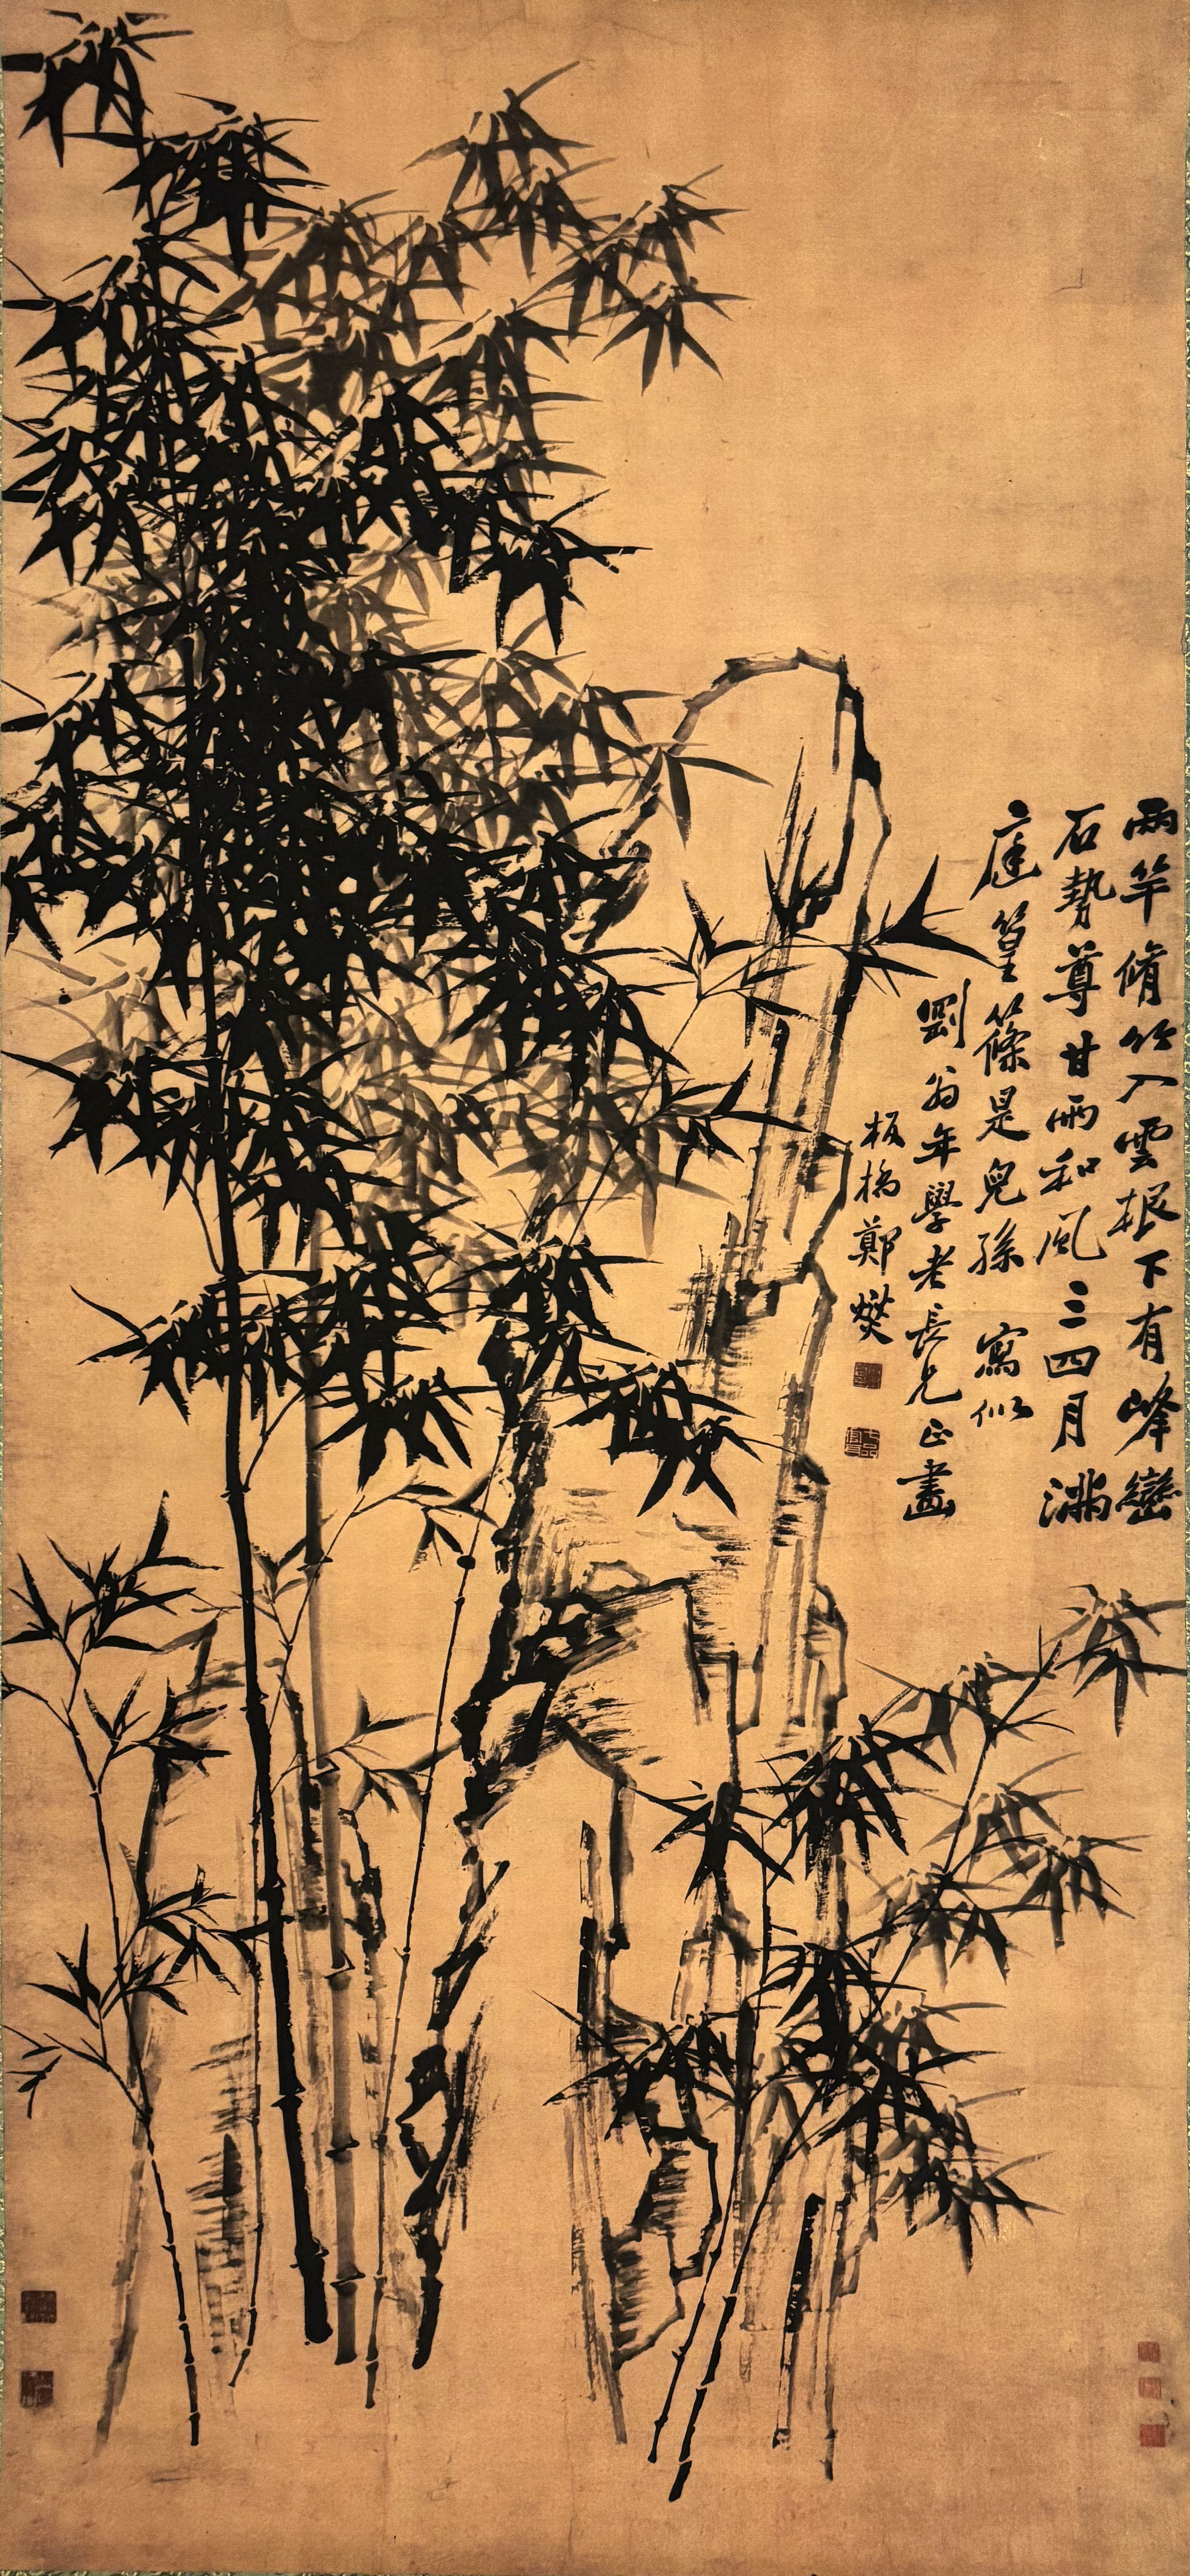 兩竿脩竹入雲根下有峰巒
石勢尊甘雨和風三四月滿
庭篁篠是兒孫 寫似
劉翁年學老長兄正畫
板橋鄭燮
七品官耳